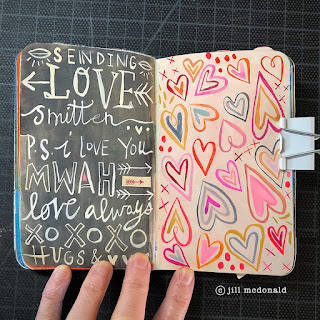 SENDING
LOVE
smitten
P.S. i LOVE YOU
MWAH
love always
XOXOXO
HUGS &
© jill mcdonald